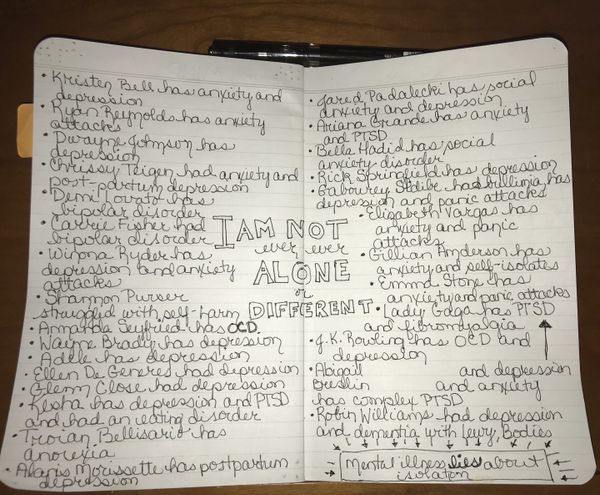 • Kristen Bell has anxiety and
depression
• Ryan Reynolds has anxiety
attacks
• Dwayne Johnson has
depression
• Chrissy Teigen had anxiety and
post-partum depression
• Demi Lovato has
bipolar disorder
• Carrie Fisher had
bipolar disorder
• Winona Ryder has
depression and anxiety
attacks
• Shannon Purser
struggled with self-harm
• Amanda Seyfried has OCD
• Wayne Brady has depression
• Adele has depression
• Ellen De Generes had depression
• Glenn Close had depression
• Kesha has depression and PTSD
and had an eating disorder
• Troian Bellisario has
anorexia
• Alanis Morissette has postpartum
depression
I AM NOT
ever, ever
ALONE
or
DIFFERENT
• Jared Padalecki has social
anxiety and depression
• Ariana Grande has anxiety
and PTSD
• Bella Hadid has social
anxiety disorder
• Rick Springfield has depression
• Gabourey Sidibe had bullimia, has
depression and panic attacks
• Elizabeth Vargas has
anxiety and panic
attacks
• Gillian Anderson has
anxiety and self-isolates
• Emma Stone has
anxiety and panic attacks
• Lady Gaga has PTSD
and fibromyalgia
• J.K. Rowling has OCD and
depression
• Abigail and depression
Breslin and anxiety
has complex PTSD
• Robin Williams had depression
and dementia with Lewy Bodies
Mental illness lies about
isolation